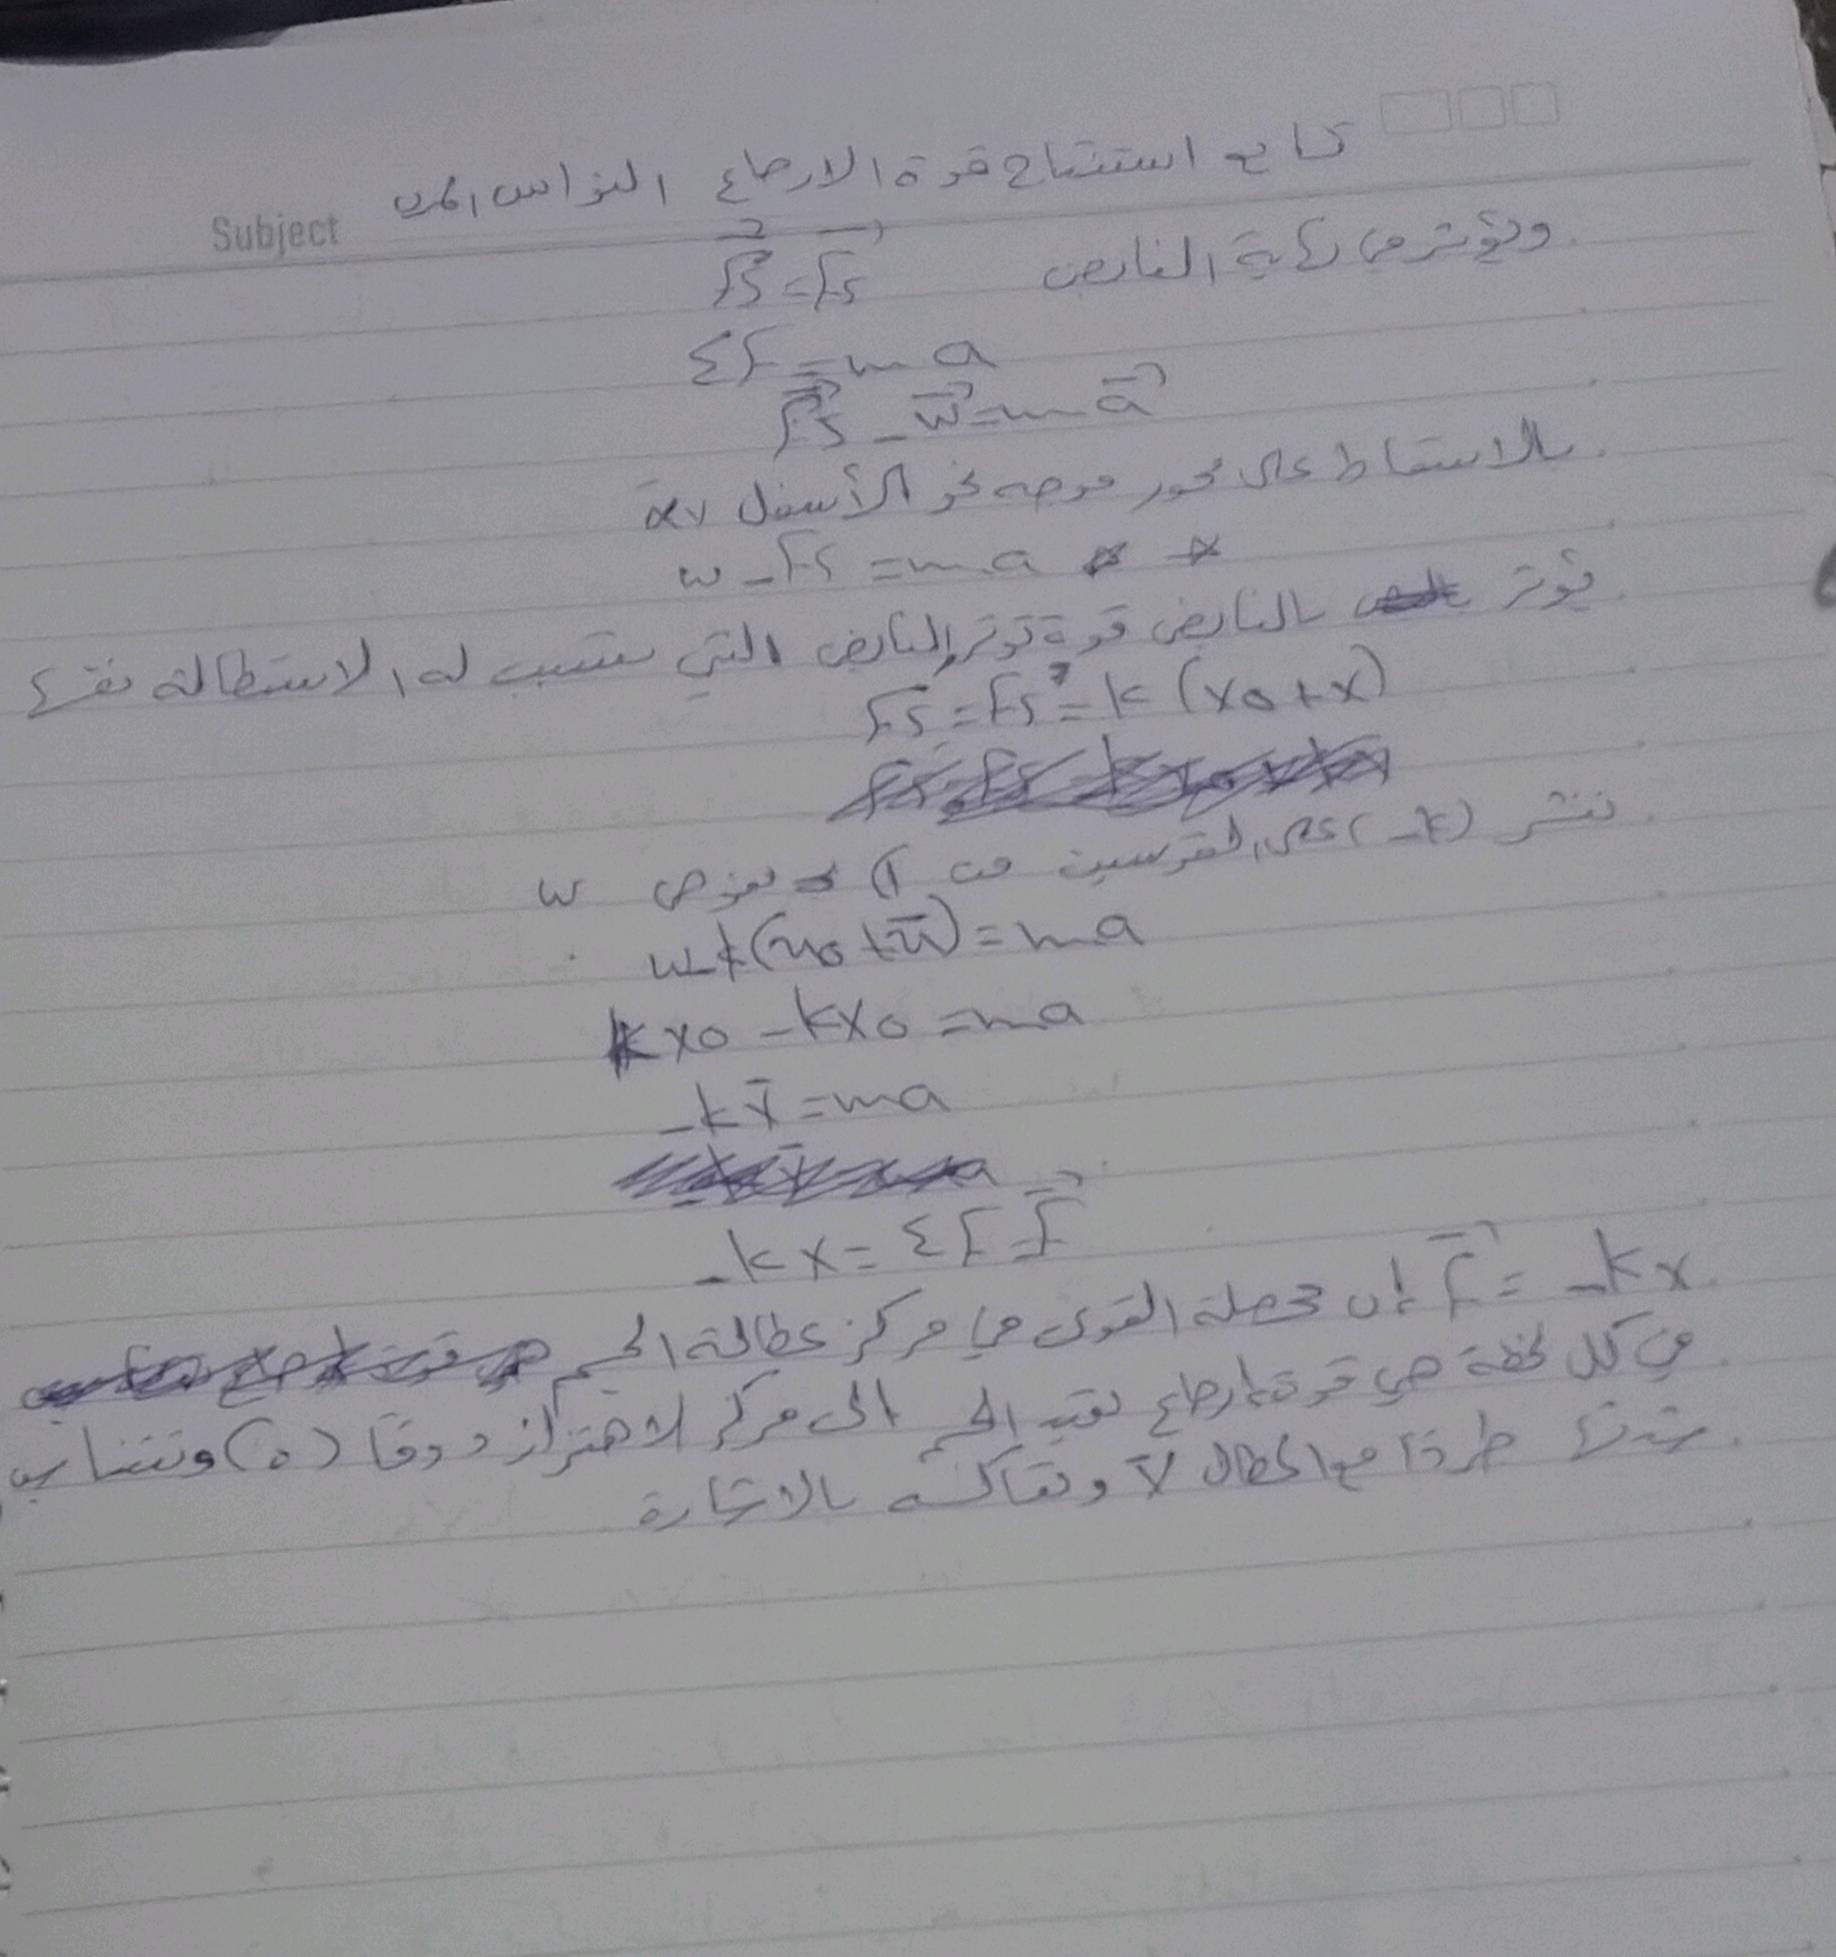 تابع استنتاج قوة الارجاع النواس المرن
Subject
وتؤثر في نهاية النابض Fs = Fs
ΣF = ma
Fs - w = ma
بالاسقاط على محور موجه نحو الأسفل
w - Fs = ma
يؤثر بالنابض قوة توتر النابض التي تسبب له الاستطالة نفسها
Fs = Fs' = k (x0 + x)
ننشر (-k) على القوسين من نعوض w
w - k(x0 + x̄) = ma
kx0 - kx0 = ma
-kx̄ = ma
-kx = ΣF = F
F = -kx إن محصلة القوى في مركز عطالة الجسم
في كل لحظة هي قوة ارجاع تعيد الجسم الى مركز الاهتزاز دوماً (o) وتتناسب
شدتها طرداً مع المطال x̄ وتعاكسه بالاشارة